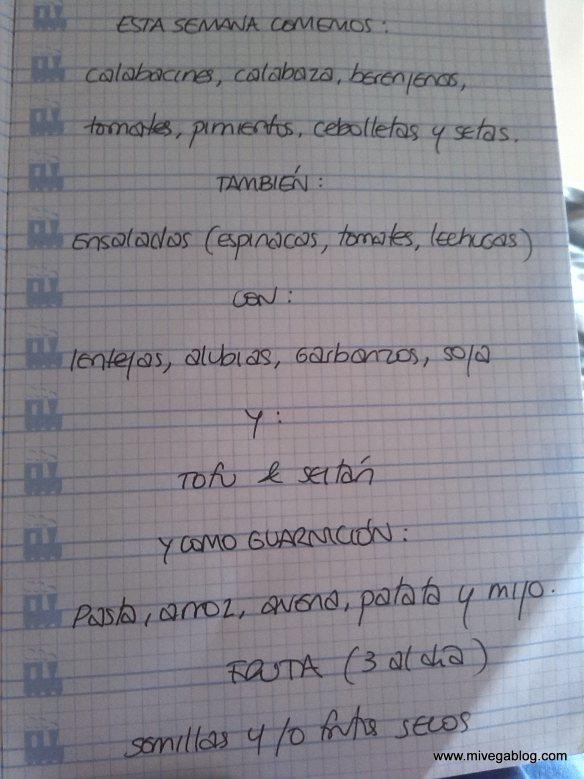 ESTA SEMANA COMEMOS:
calabacines, calabaza, berenjenas,
tomates, pimientos, cebolletas y setas.
TAMBIÉN:
Ensaladas (espinacas, tomates, lechugas)
CON:
lentejas, alubias, garbanzos, soja
Y:
Tofu & seitán
Y COMO GUARNICIÓN:
Pasta, arroz, avena, patata y mijo.
FRUTA (3 al día)
semillas y/o frutos secos
www.mivegablog.com